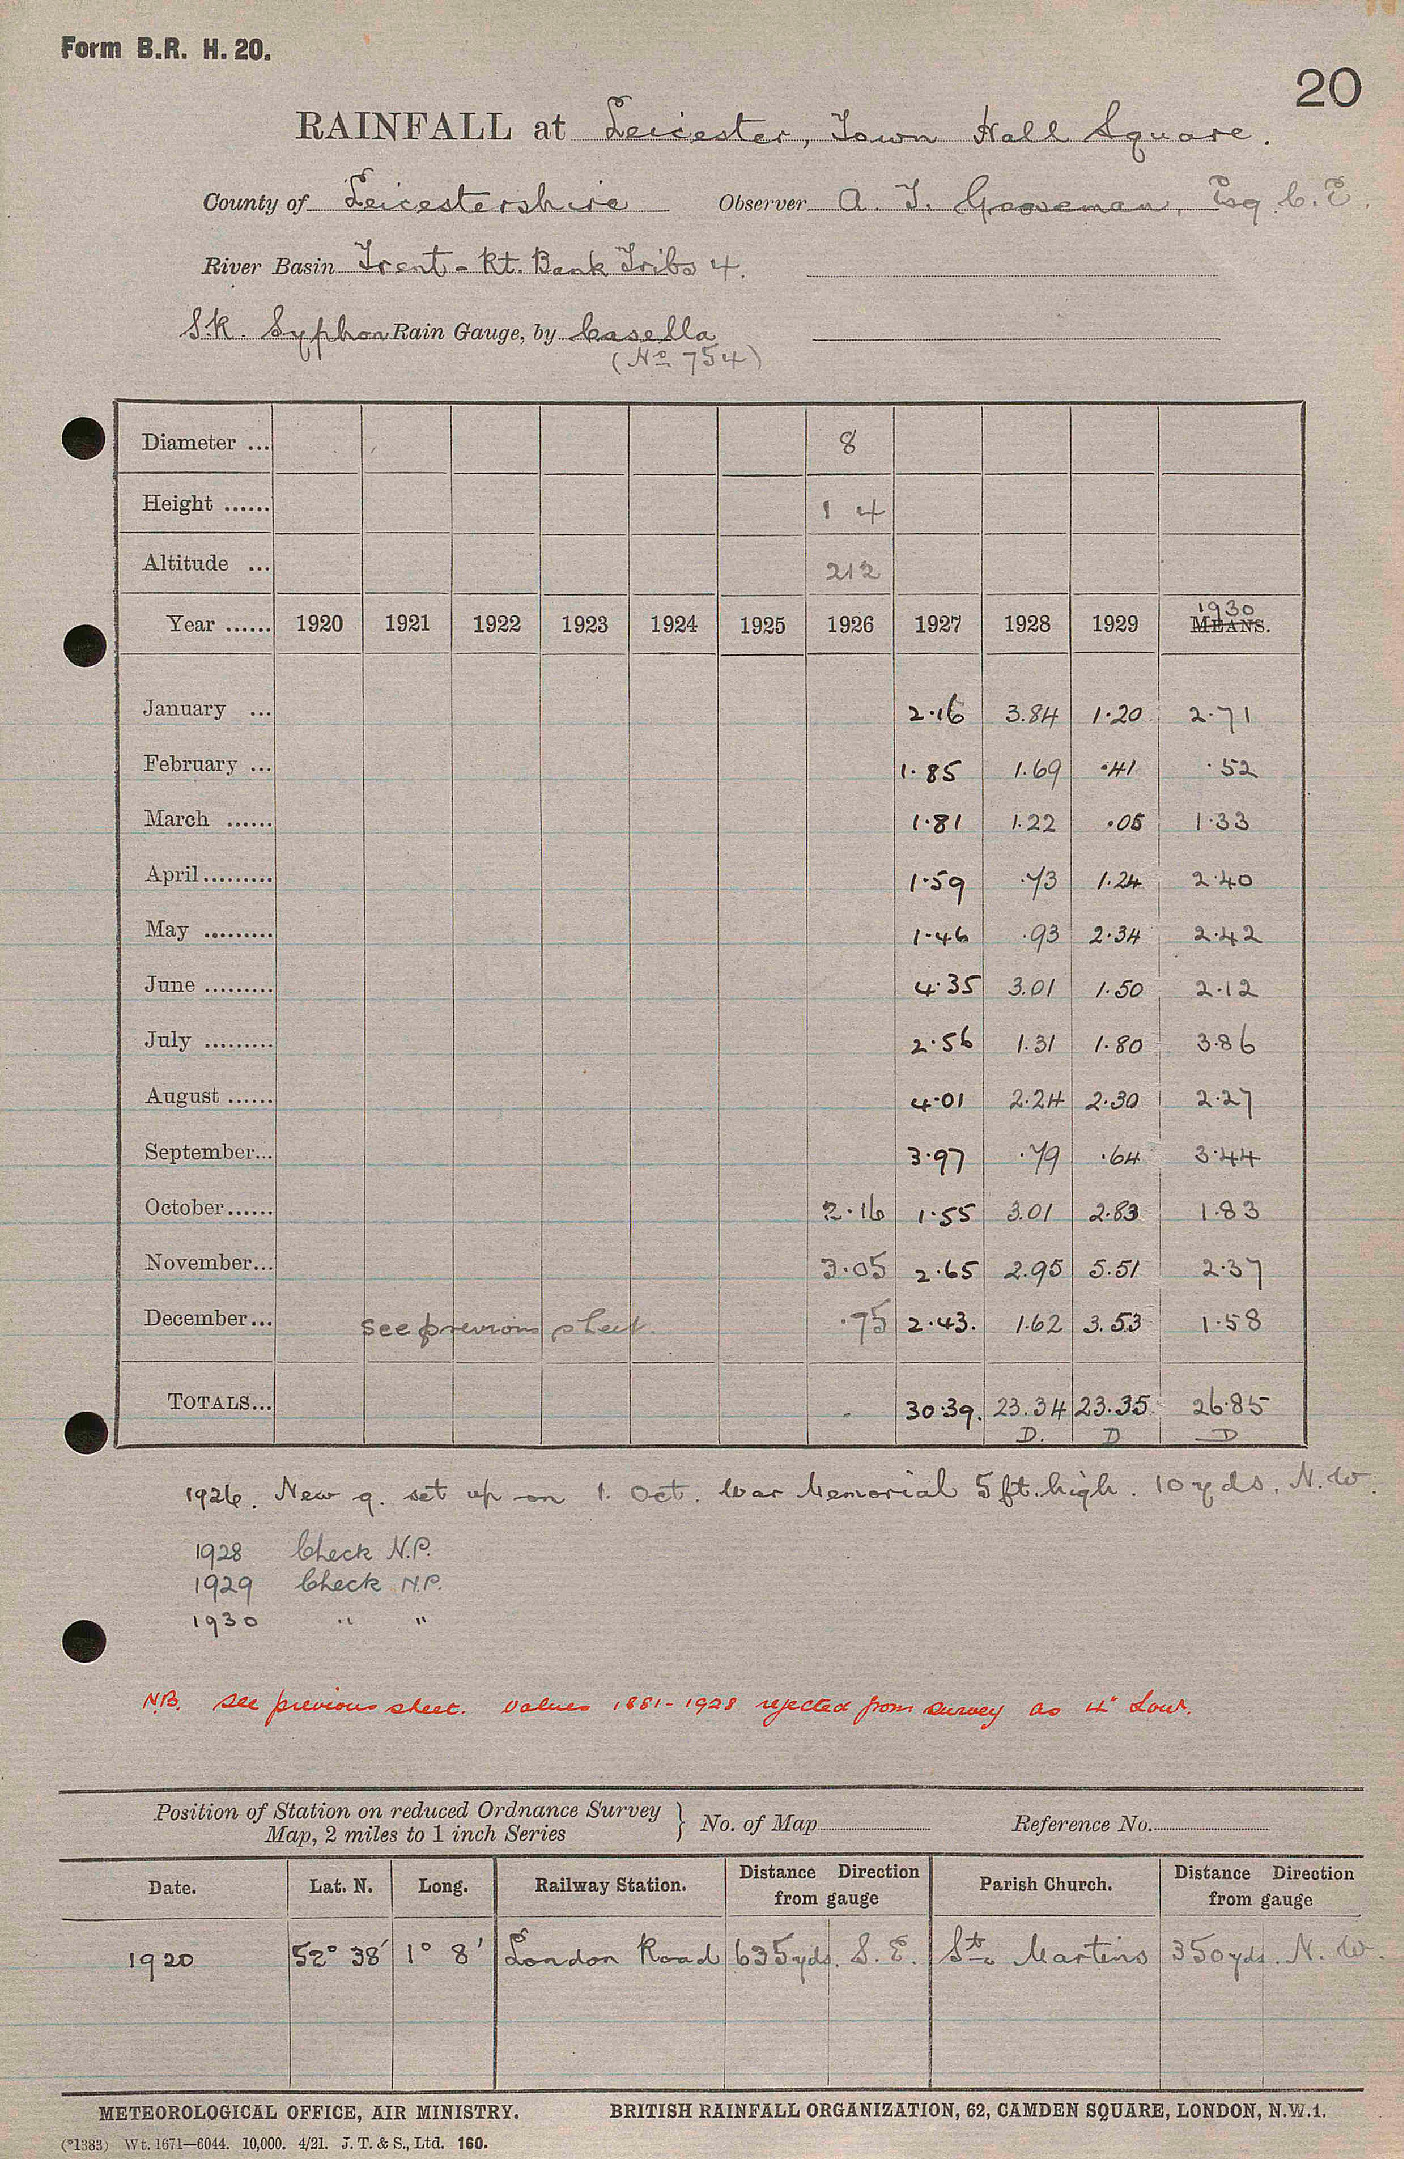 Form B.R. H. 20.
20
RAINFALL at Leicester, Town Hall Square.
County of Leicestershire Observer A. T. Gooseman, Esq. C.E.
River Basin Trent - Rt. Bank Tribs 4.
S.K. Syphon Rain Gauge, by Casella
(No 754)
Diameter ... 8
Height ...... 1 4
Altitude ... 212
Year ...... 1920 1921 1922 1923 1924 1925 1926 1927 1928 1929 1930 MEANS.
January ... 2.16 3.84 1.20 2.71
February ... 1.85 1.69 .41 .52
March ...... 1.81 1.22 .05 1.33
April ......... 1.59 .73 1.24 2.40
May ......... 1.46 .93 2.34 2.42
June ......... 4.35 3.01 1.50 2.12
July ......... 2.56 1.31 1.80 3.86
August ...... 4.01 2.24 2.30 2.27
September... 3.97 .79 .64 3.44
October...... 2.16 1.55 3.01 2.83 1.83
November... 3.05 2.65 2.95 5.51 2.37
December... see previous sheet. .75 2.43. 1.62 3.53 1.58
TOTALS... - 30.39. 23.34 23.35. 26.85
D. D D
1926. New g. set up on 1. Oct. War Memorial 5 ft. high. 10 yds. N.W.
1928 Check N.P.
1929 Check N.P.
1930 " "
N.B. see previous sheet. Values 1881-1928 rejected from survey as 4" Low.
Position of Station on reduced Ordnance Survey
Map, 2 miles to 1 inch Series } No. of Map Reference No.
Date. Lat. N. Long. Railway Station. Distance Direction from gauge Parish Church. Distance Direction from gauge
1920 52° 38' 1° 8' London Road 635 yds. S.E. St. Martins 350 yds. N.W.
METEOROLOGICAL OFFICE, AIR MINISTRY. BRITISH RAINFALL ORGANIZATION, 62, CAMDEN SQUARE, LONDON, N.W.1.
(*1383) Wt. 1671—6044. 10,000. 4/21. J. T. & S., Ltd. 160.